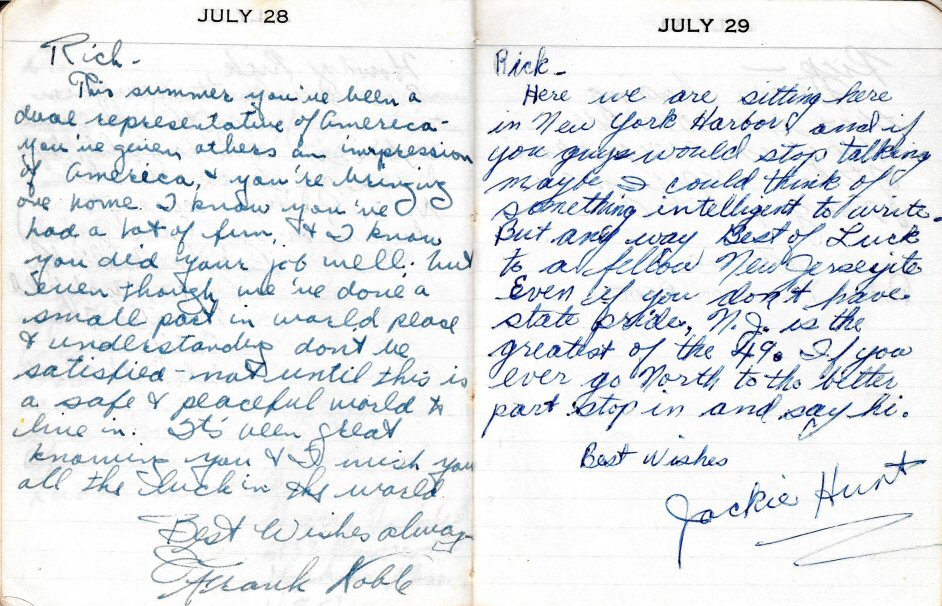 JULY 28
Rich -
This summer you've been a
dual representative of America -
you've given others an impression
of America, & you're bringing
one home. I know you've
had a lot of fun, & I know
you did your job well; but
even though we've done a
small part in world peace
& understanding dont be
satisfied - not until this is
a safe & peaceful world to
live in. It's been great
knowing you & I wish you
all the luck in the world
Best Wishes always
Frank Noble
JULY 29
Rick -
Here we are sitting here
in New York Harbor, and if
you guys would stop talking
maybe I could think of
something intelligent to write.
But any way Best of Luck
to a fellow New Jerseyite
Even if you don't have
state pride, N.J. is the
greatest of the 49. If you
ever go North to the better
part stop in and say hi.
Best Wishes
Jackie Hunt